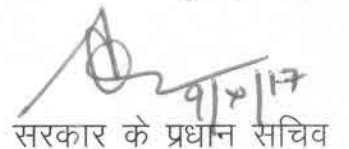 9/x/17
सरकार के प्रधान सचिव